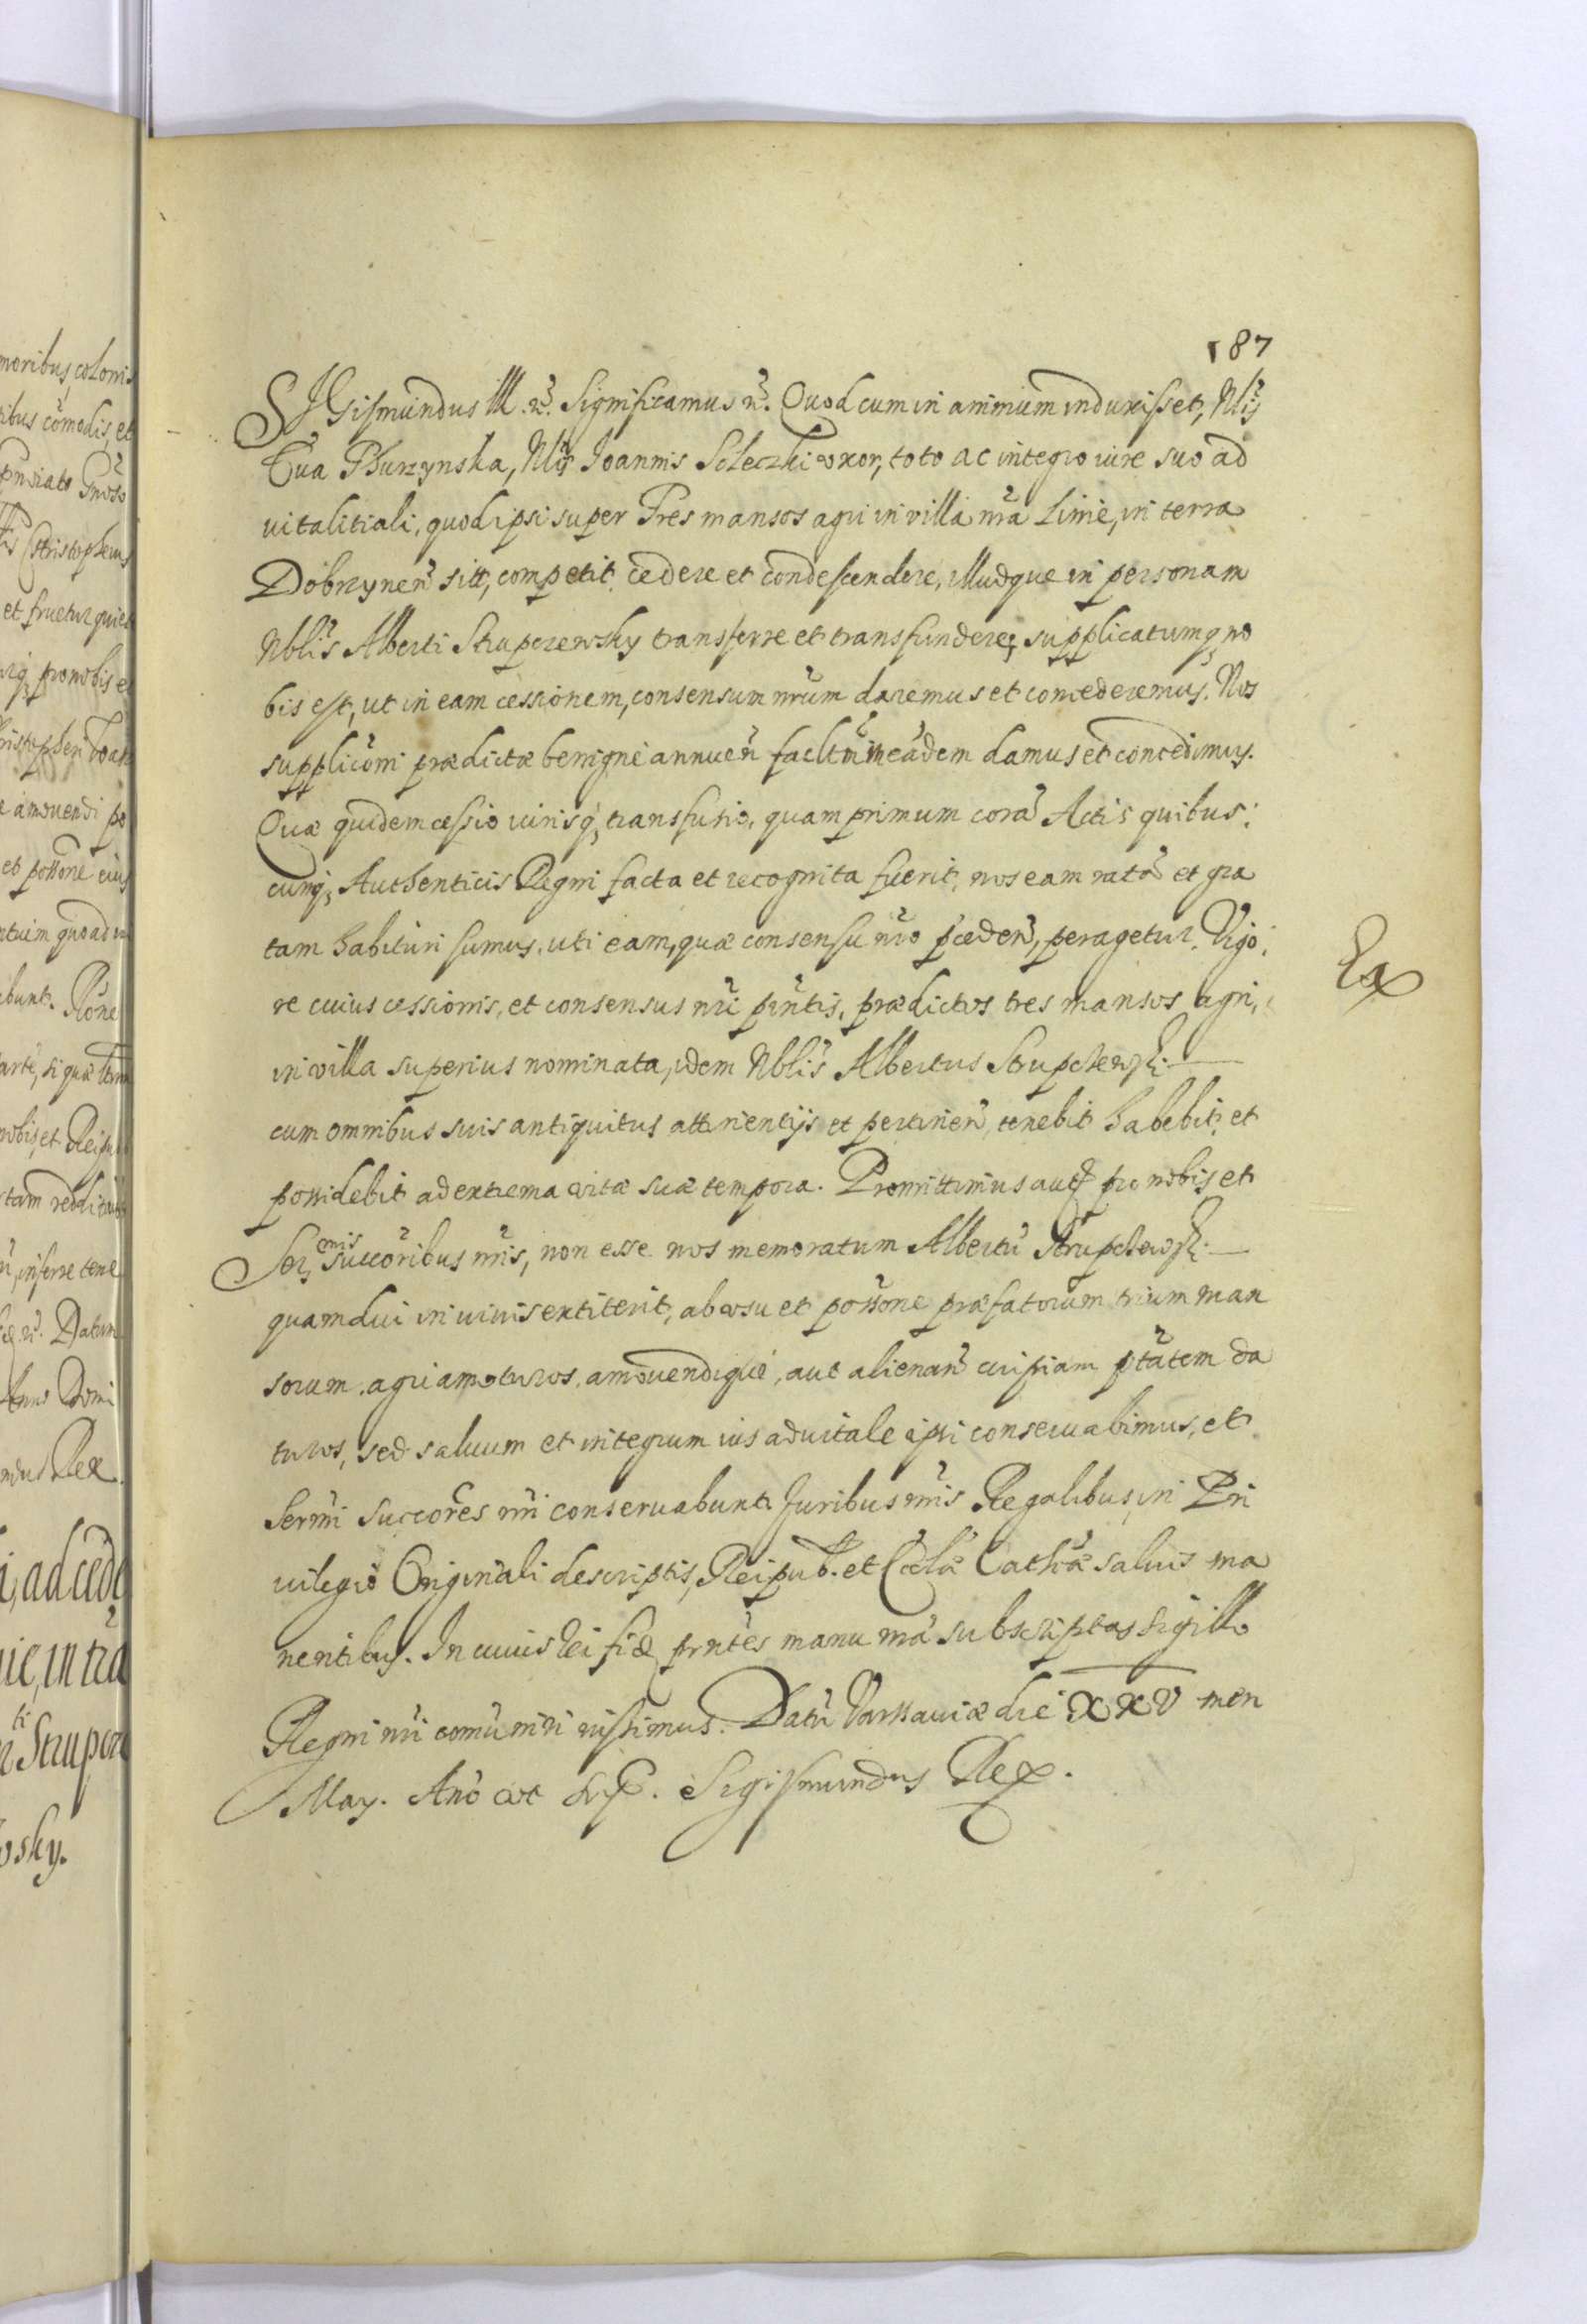 187
SIGismundus III. rc. Significamus rc. Quod cum in animum induxisset, Nlis
Eua Płurzynska, Nlis Ioannis Soleczki uxor, toto ac integro iure suo ad
uitalitiali, quod ipsi super Tres mansos agri in villa nra Linie, in terra
Dobrzynen sitt, competit, cedere et condescendere, illudque in personam
Nblis Alberti Strupczewsky transferre et transfundere, supplicatumq no
bis est, ut in eam cessionem, consensum nrum daremus et concederemus. Nos
supplicõni prædictæ benignè annuen facltm in eadem damus et concedimus.
Quæ quidem cessio iurisq transfusio, quam primum corã Actis quibus:
cunq, Authenticis Regni facta et recognita fuerit, nos eam ratã et gra
tam habituri sumus, uti eam, quæ consensu nro pceden, peragetur. Vigo:
re cuius cessionis, et consensus nri pntis, prædictos tres mansos agri,
Ex
in villa superius nominata, idem Nblis Albertus Strupchewski
cum omnibus suis antiquitus attinentijs et pertinen, tenebit habebit, et
possidebit ad extrema vitæ suæ tempora. Promittimus autem pro nobis et
Ser mis succoribus nris, non esse nos memoratum Albertũ Strupchewski
quamdiu in viuis extiterit, ab usu et possone præfatorum trium man
sorum agri amoturos, amouendique, aut alienan cuipiam ptãtem da
turos, sed saluum et integrum ius aduitale ipsi conseruabimus, et
Sermi succores nri conseruabunt. Iuribus nris Regalibus, in Pri
uilegio Originali descriptis, Reipub. et Cclæ Cathæ saluis ma
nentibus. In cuius rei fidem pntes manu nra subscriptas sigillo
Regni nri comuniri iussimus. Datũ Varssauiæ die XXV men
May. Ano ut supra. Sigismundus Rex.